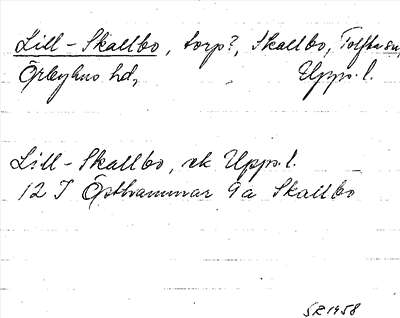 Lill-Skallbo, torp?, Skallbo, Tolfta sn,
Örbyhus hd, Upps. l.
Lill-Skallbo, ek Upps. l.
12 I Östhammar 9a Skallbo
SR 1958